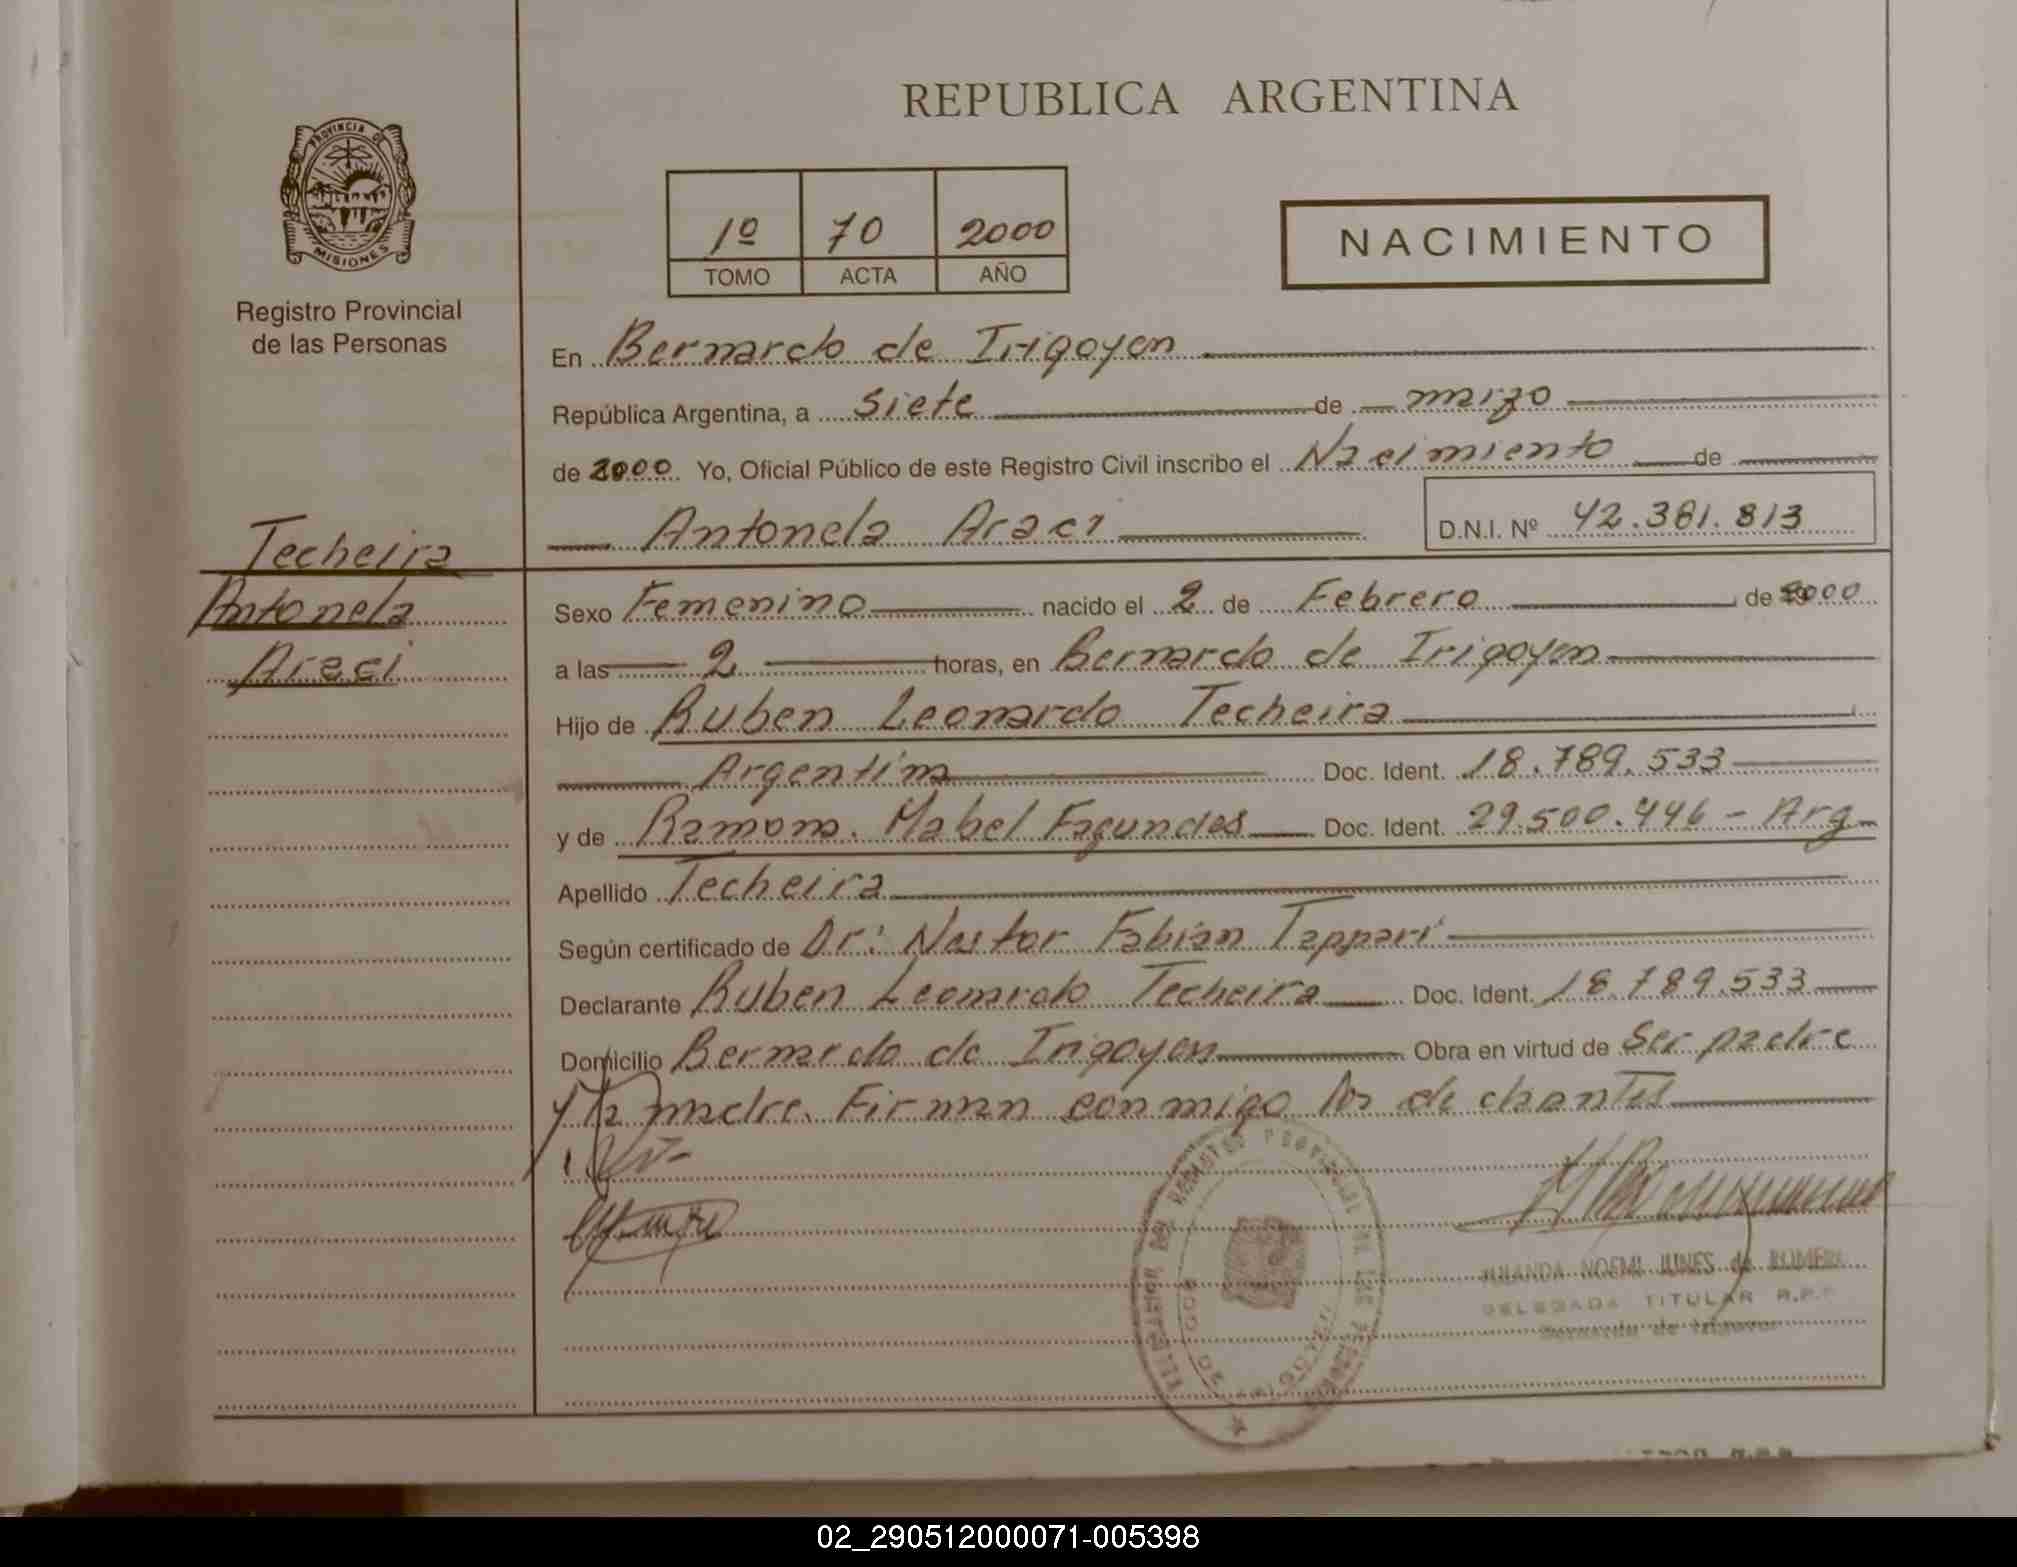 REPUBLICA ARGENTINA
PROVINCIA DE
MISIONES
Registro Provincial
de las Personas
1º 70 2000
TOMO ACTA AÑO
NACIMIENTO
En Bernardo de Irigoyen
República Argentina, a siete de marzo
de 2000 Yo, Oficial Público de este Registro Civil inscribo el Nacimiento de
Antonela Araci D.N.I. Nº 42.381.813
Techeira
Antonela
Araci
Sexo Femenino nacido el 2 de Febrero de 2000
a las 2 horas, en Bernardo de Irigoyen
Hijo de Ruben Leonardo Techeira
Argentina Doc. Ident. 18.789.533
y de Ramona Mabel Fagundes Doc. Ident. 29.500.446 - Arg
Apellido Techeira
Según certificado de Dr: Nestor Fabian Tappari
Declarante Ruben Leonardo Techeira Doc. Ident. 18.789.533
Domicilio Bernardo de Irigoyen Obra en virtud de Ser padre
y la madre. Firman conmigo los
NOEMI JUNES de ROMERO
DELEGADA TITULAR R.P.P.
Bernardo de Irigoyen
02_290512000071-005398